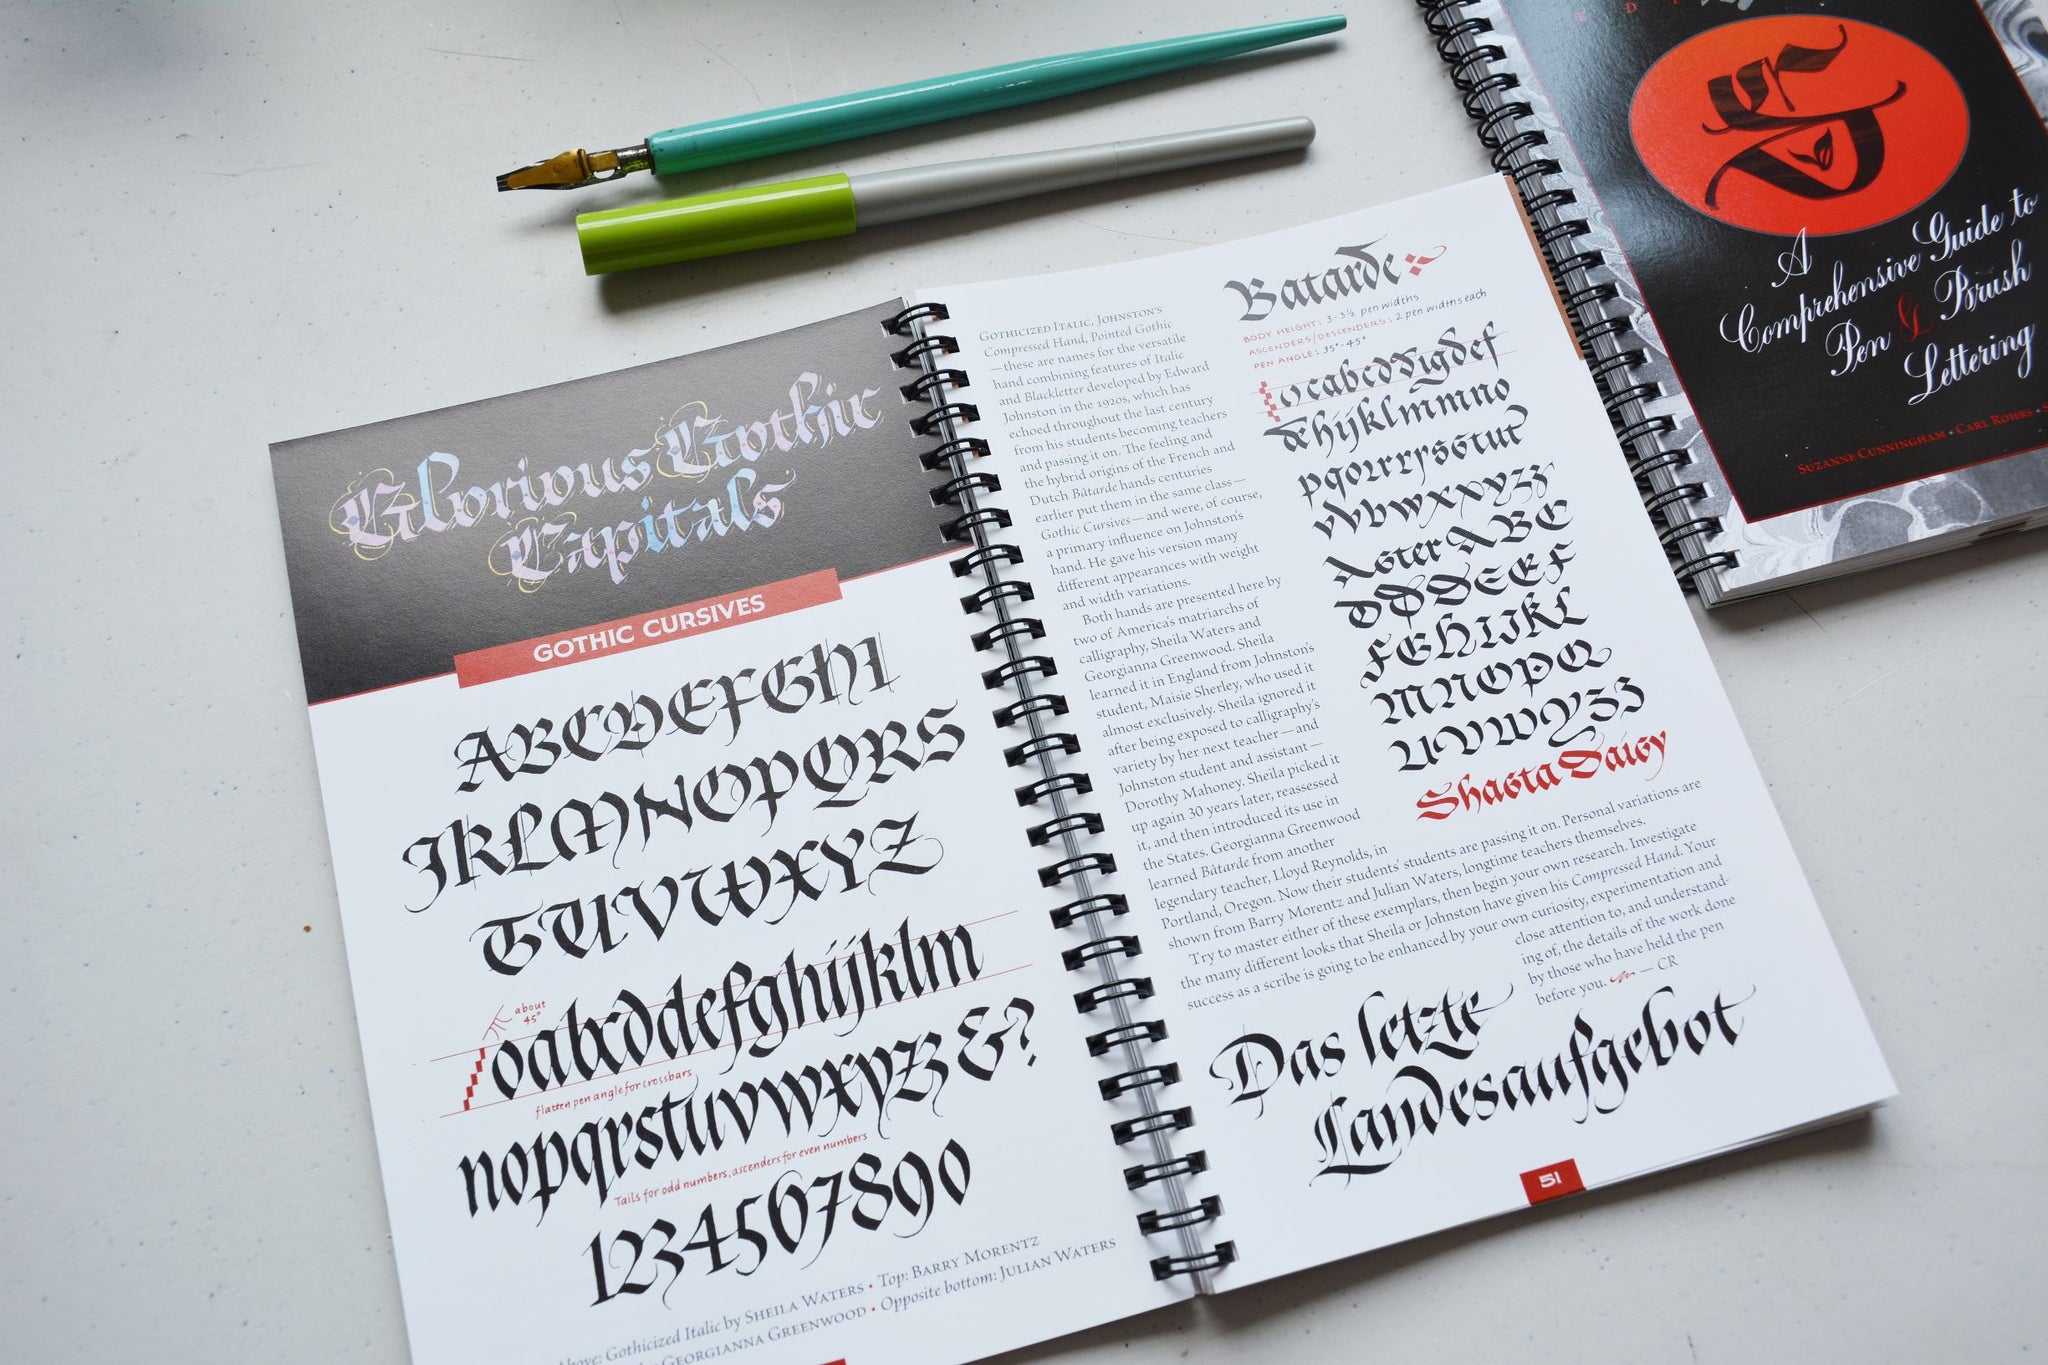 Glorious Gothic
Capitals
GOTHIC CURSIVES
ABCDEFGHI
JKLMNOPQRS
TUVWXYZ
about
45°
oabcddefghijklm
flatten pen angle for crossbars
nopqrstuvwxyz &?
Tails for odd numbers, ascenders for even numbers
1234567890
Above: Gothicized Italic by SHEILA WATERS • Top: BARRY MORENTZ
GEORGIANNA GREENWOOD • Opposite bottom: JULIAN WATERS
GOTHICIZED ITALIC, JOHNSTON'S
Compressed Hand, Pointed Gothic
—these are names for the versatile
hand combining features of Italic
and Blackletter developed by Edward
Johnston in the 1920s, which has
echoed throughout the last century
from his students becoming teachers
and passing it on. The feeling and
the hybrid origins of the French and
Dutch Bâtarde hands centuries
earlier put them in the same class—
Gothic Cursives—and were, of course,
a primary influence on Johnston's
hand. He gave his version many
different appearances with weight
and width variations.
Both hands are presented here by
two of America's matriarchs of
calligraphy, Sheila Waters and
Georgianna Greenwood. Sheila
learned it in England from Johnston's
student, Maisie Sherley, who used it
almost exclusively. Sheila ignored it
after being exposed to calligraphy's
variety by her next teacher—and
Johnston student and assistant—
Dorothy Mahoney. Sheila picked it
up again 30 years later, reassessed
it, and then introduced its use in
the States. Georgianna Greenwood
learned Bâtarde from another
legendary teacher, Lloyd Reynolds, in
Portland, Oregon. Now their students' students are passing it on. Personal variations are
shown from Barry Morentz and Julian Waters, longtime teachers themselves.
Try to master either of these exemplars, then begin your own research. Investigate
the many different looks that Sheila or Johnston have given his Compressed Hand. Your
success as a scribe is going to be enhanced by your own curiosity, experimentation and
close attention to, and understand-
ing of, the details of the work done
by those who have held the pen
before you. — CR
Batarde
BODY HEIGHT: 3-3½ pen widths
ASCENDERS/DESCENDERS: 2 pen widths each
PEN ANGLE: 35°-45°
Aster ABC
MNOPQ
UVWYZZ
Shasta Daisy
Das letzte
Landesaufgebot
51
A
Comprehensive Guide to
Pen & Brush
Lettering
SUZANNE CUNNINGHAM • CARL ROHRS •